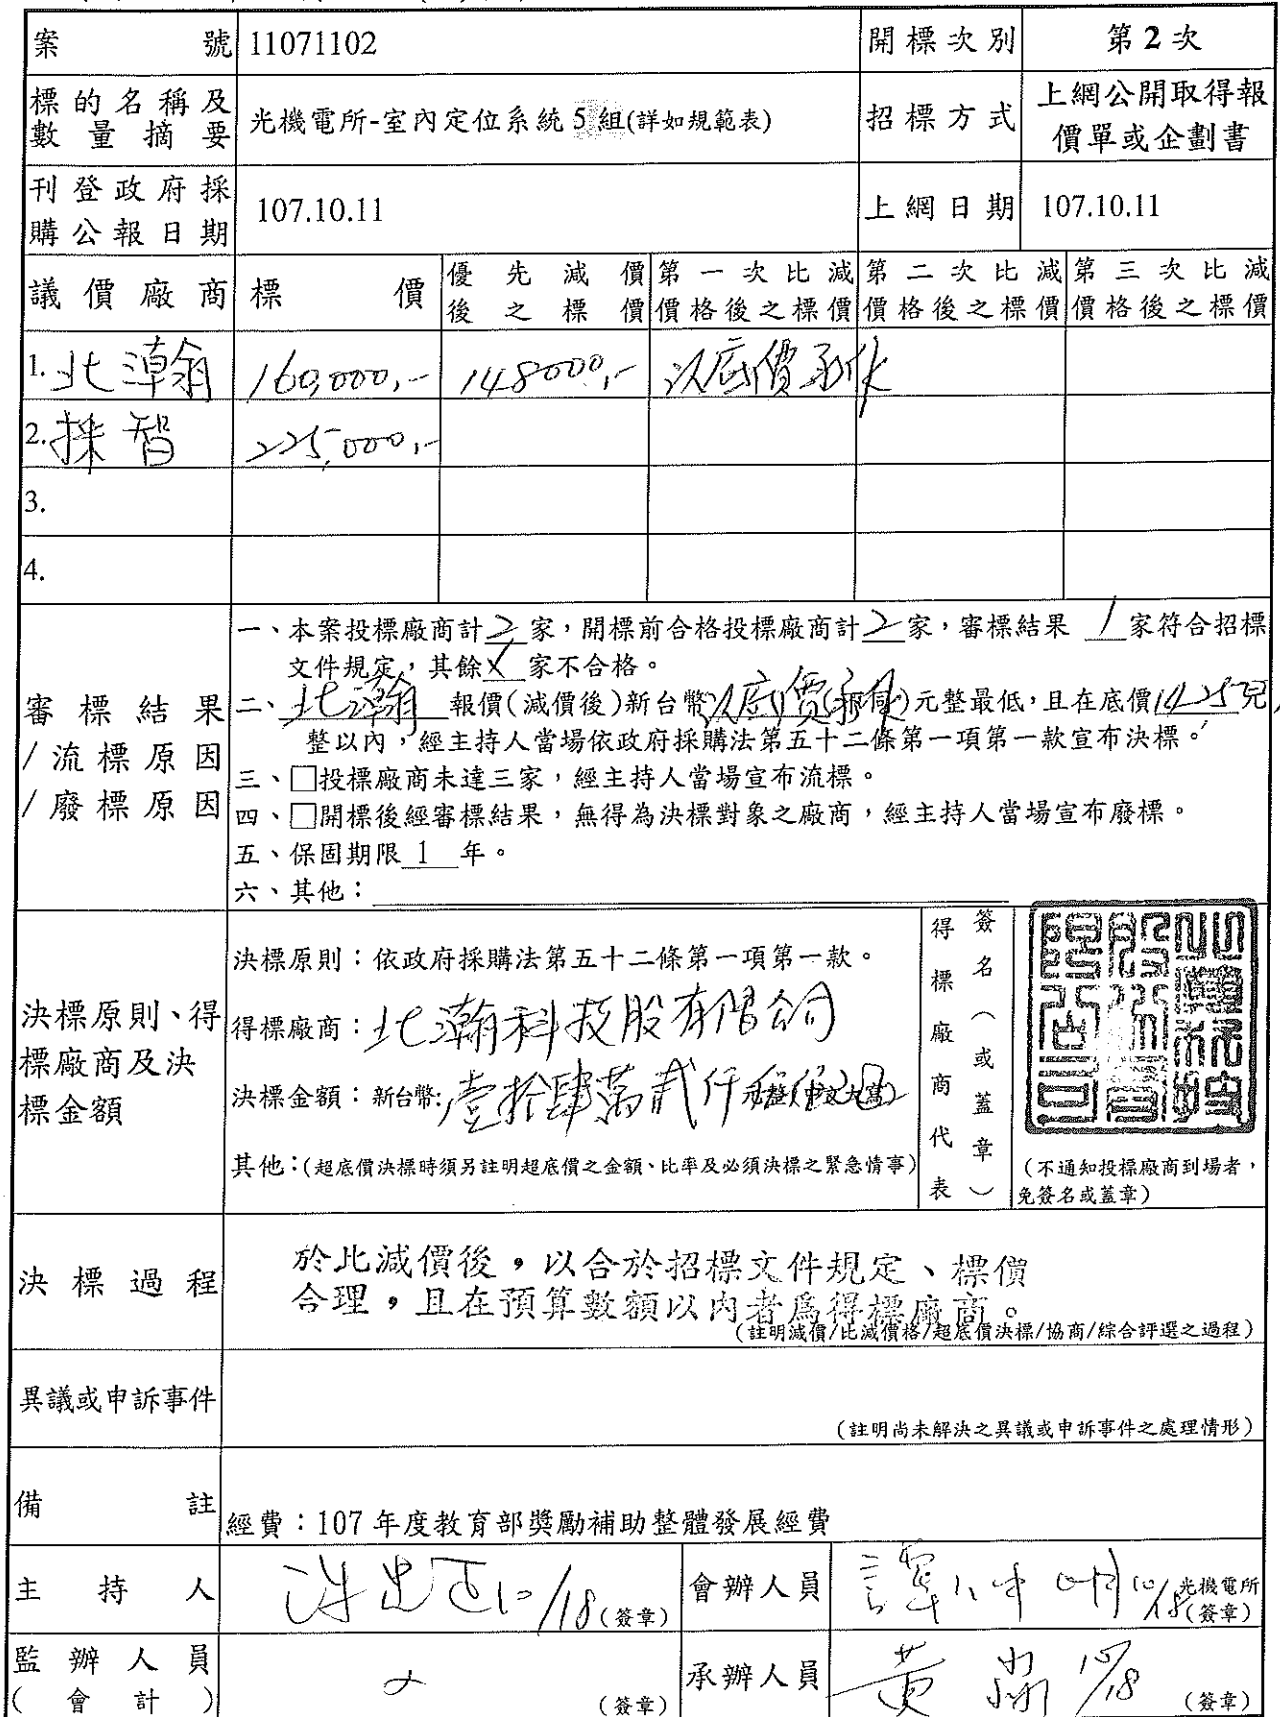 案號 11071102 開標次別 第2次
標的名稱及數量摘要 光機電所-室內定位系統 5 組(詳如規範表) 招標方式 上網公開取得報價單或企劃書
刊登政府採購公報日期 107.10.11 上網日期 107.10.11
議價廠商 標價 優先減價後之標價 第一次比減價格後之標價 第二次比減價格後之標價 第三次比減價格後之標價
1. 北瀚 160,000,- 148000,- 以底價承作
2. 採智 225,000,-
3.
4.
審標結果/流標原因/廢標原因
一、本案投標廠商計 2 家，開標前合格投標廠商計 2 家，審標結果 1 家符合招標
文件規定，其餘 家不合格。
二、北瀚 報價(減價後)新台幣 以底價承作 元整最低，且在底價
整以內，經主持人當場依政府採購法第五十二條第一項第一款宣布決標。
三、□投標廠商未達三家，經主持人當場宣布流標。
四、□開標後經審標結果，無得為決標對象之廠商，經主持人當場宣布廢標。
五、保固期限 1 年。
六、其他：
決標原則、得標廠商及決標金額
決標原則：依政府採購法第五十二條第一項第一款。
得標廠商：北瀚科技股有限公司
決標金額：新台幣:壹拾肆萬貳仟
其他：(超底價決標時須另註明超底價之金額、比率及必須決標之緊急情事)
得標廠商代表
簽名（或蓋章）
(不通知投標廠商到場者，
免簽名或蓋章)
決標過程
於此減價後，以合於招標文件規定、標價
合理，且在預算數額以內者為得標廠商。
(註明減價/比減價格/超底價決標/協商/綜合評選之過程)
異議或申訴事件
(註明尚未解決之異議或申訴事件之處理情形)
備註 經費：107 年度教育部獎勵補助整體發展經費
主持人 10/18 (簽章) 會辦人員 10/18 光機電所
(簽章)
監辦人員
(會計) (簽章) 承辦人員 黃 10/18 (簽章)